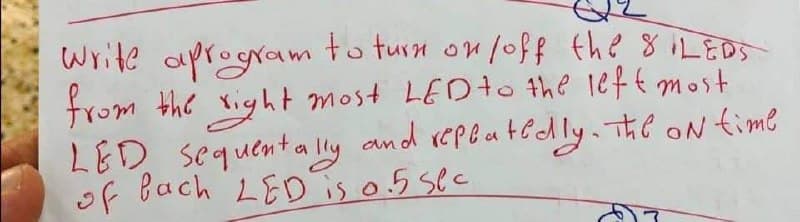 Q2
write a program to turn on/off the 8 LEDs
from the right most LED to the left most
LED sequentally and repeatedly. The ON time
of Each LED is 0.5 sec